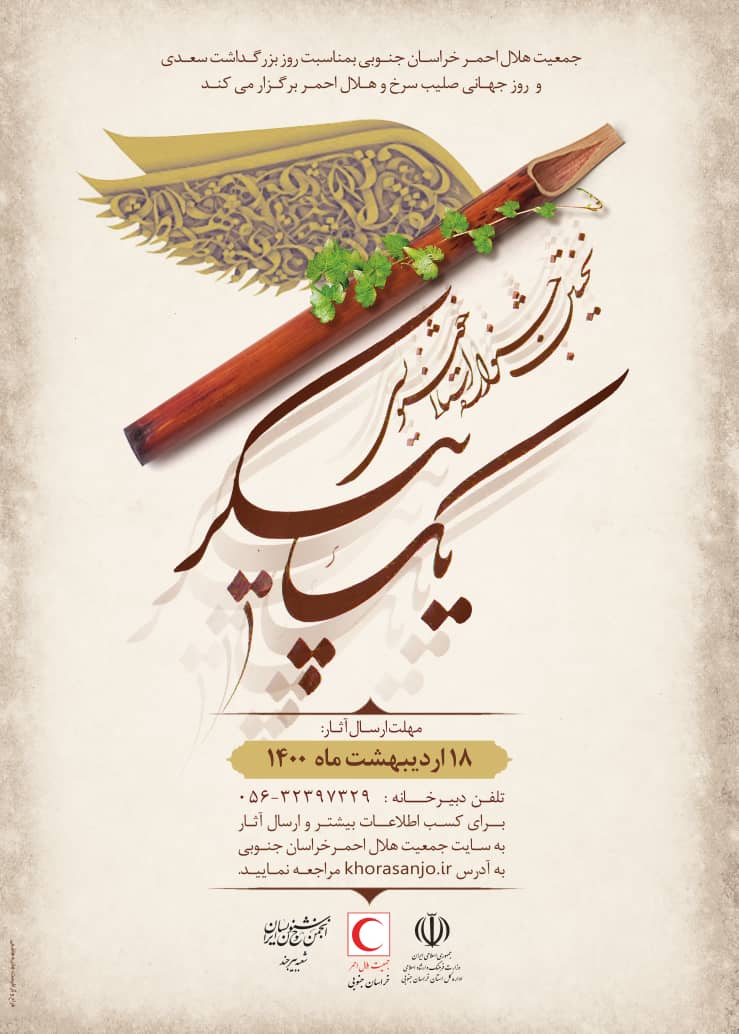 جمعیت هلال احمر خراسان جنوبی بمناسبت روز بزرگداشت سعدی
و روز جهانی صلیب سرخ و هلال احمر برگزار می کند
نخستین جشنواره استانی خوشنویسی
یک پیکر
مهلت ارسال آثار:
۱۸ اردیبهشت ماه ۱۴۰۰
تلفن دبیرخانه : ۳۲۳۹۷۳۲۹-۰۵۶
برای کسب اطلاعات بیشتر و ارسال آثار
به سایت جمعیت هلال احمرخراسان جنوبی
به آدرس khorasanjo.ir مراجعه نمایید.
انجمن خوشنویسان ایران
شعبه بیرجند
جمعیت هلال احمر
خراسان جنوبی
جمهوری اسلامی ایران
وزارت فرهنگ و ارشاد اسلامی
اداره کل استان خراسان جنوبی